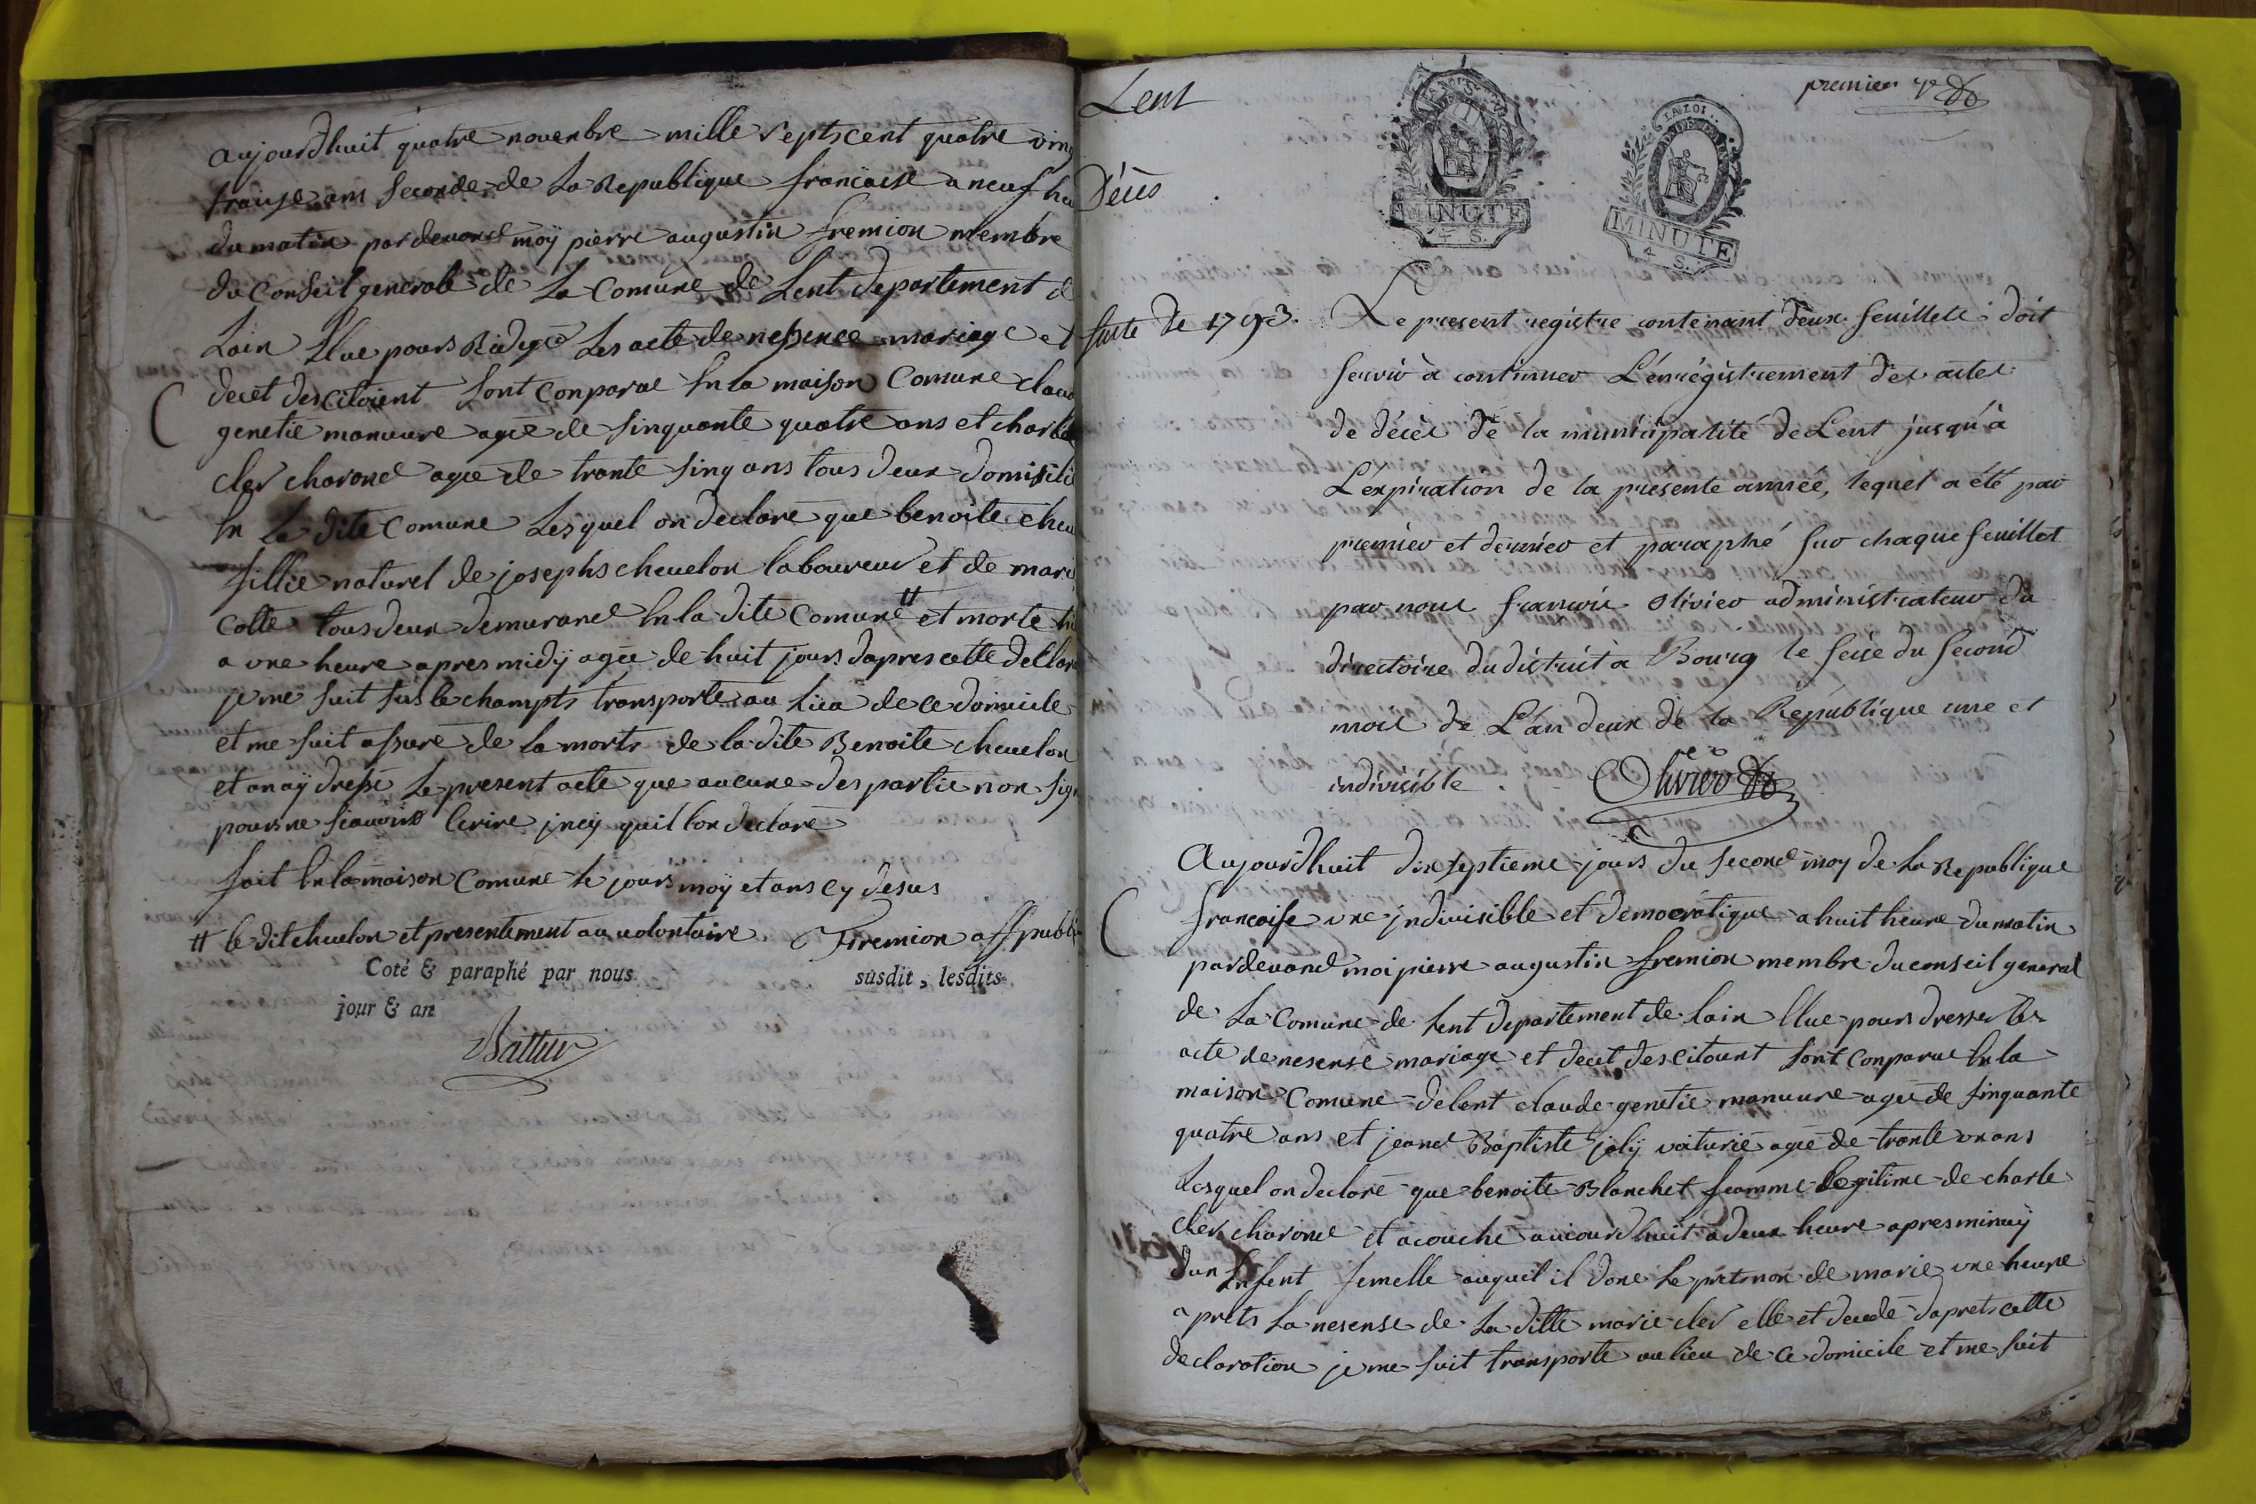 aujourdhuit quatre novenbre mille septscent quatre ving
traize ans seconde de La Republique francaise a neuf heu
du matin pardevand moÿ pierre augustin fremion membre
du Conseil generale de La Comune de Lent departement d
Lain Elue pours Rediger Les acte de nessence mariage et
decet des Citoient Sont Conparue En la maison Comune claud
genetie manuvre agee de sinquante quatre ans et charle
cler charond agee de trante sinq ans tous deux domisilie
En La dite Comune Lesquel on declare que benoite cheu
fillie naturel de josephs cheuelon laboureur et de mari
colte tous deux demurand En la dite Comune # et morte hi
a une heure apres midÿ agee de huit jours dapres cette declar
je me suit sus le champts transporte au Lieu de ce domicile
et me suit assure de la morts de la dite Benoite cheuelon
et an aÿ dresse Le present acte que aucune des partie non sign
pours ne scauoire Ecrire jncÿ quil lon declare
fait En la maison Comune le jours moÿ et ans cy desus
# le dit cheuelon et presentement au uolontaire Fremion off publi
Coté & paraphé par nous susdit, lesdits
jour & an
Battur
Lent
premier
LA LOI
MINUTE
4 S.
LA LOI
MINUTE
4 S.
Décès
suite de 1793.
Le present registre contenant deux feuillets doit
servir à continuer L'enregistrement des actes
de décès de la municipalité de Lent jusqu'à
L'expiration de la presente année, lequel a été par
premier et dernier et paraphé sur chaque feuillet
par nous francois Olivier administrateur du
directoire du district a Bourg le seise du second
mois de L'an deux de la République une et
indivisible
Olivier
Aujourdhuit dix septieme jours du second moy de La Republique
francoise une jndiuisible et democratique a huit heure du matin
pardevand moi pierre augustin fremion membre du conseil general
de La Comune de Lent departement de Lain Elue pours dresser les
acte de nesense mariage et decet des Citouent sont Conparue En la
maison Comune de lent claude genetie manuure agee de sinquante
quatre ans et jeand Baptiste jolÿ voiturie agee de trante un ans
Lesquel on declare que benoite Blanchet feamme Legitime de charle
cler charond et acouche aujourdhuit a deux heure apres minuÿ
dun Enfent femelle auquel il done Le pretnon de marie une heure
aprets La nesense de La ditte marie cler elle et decede daprets cette
declaration je me suit transporte au lieu de ce domicile et me suit